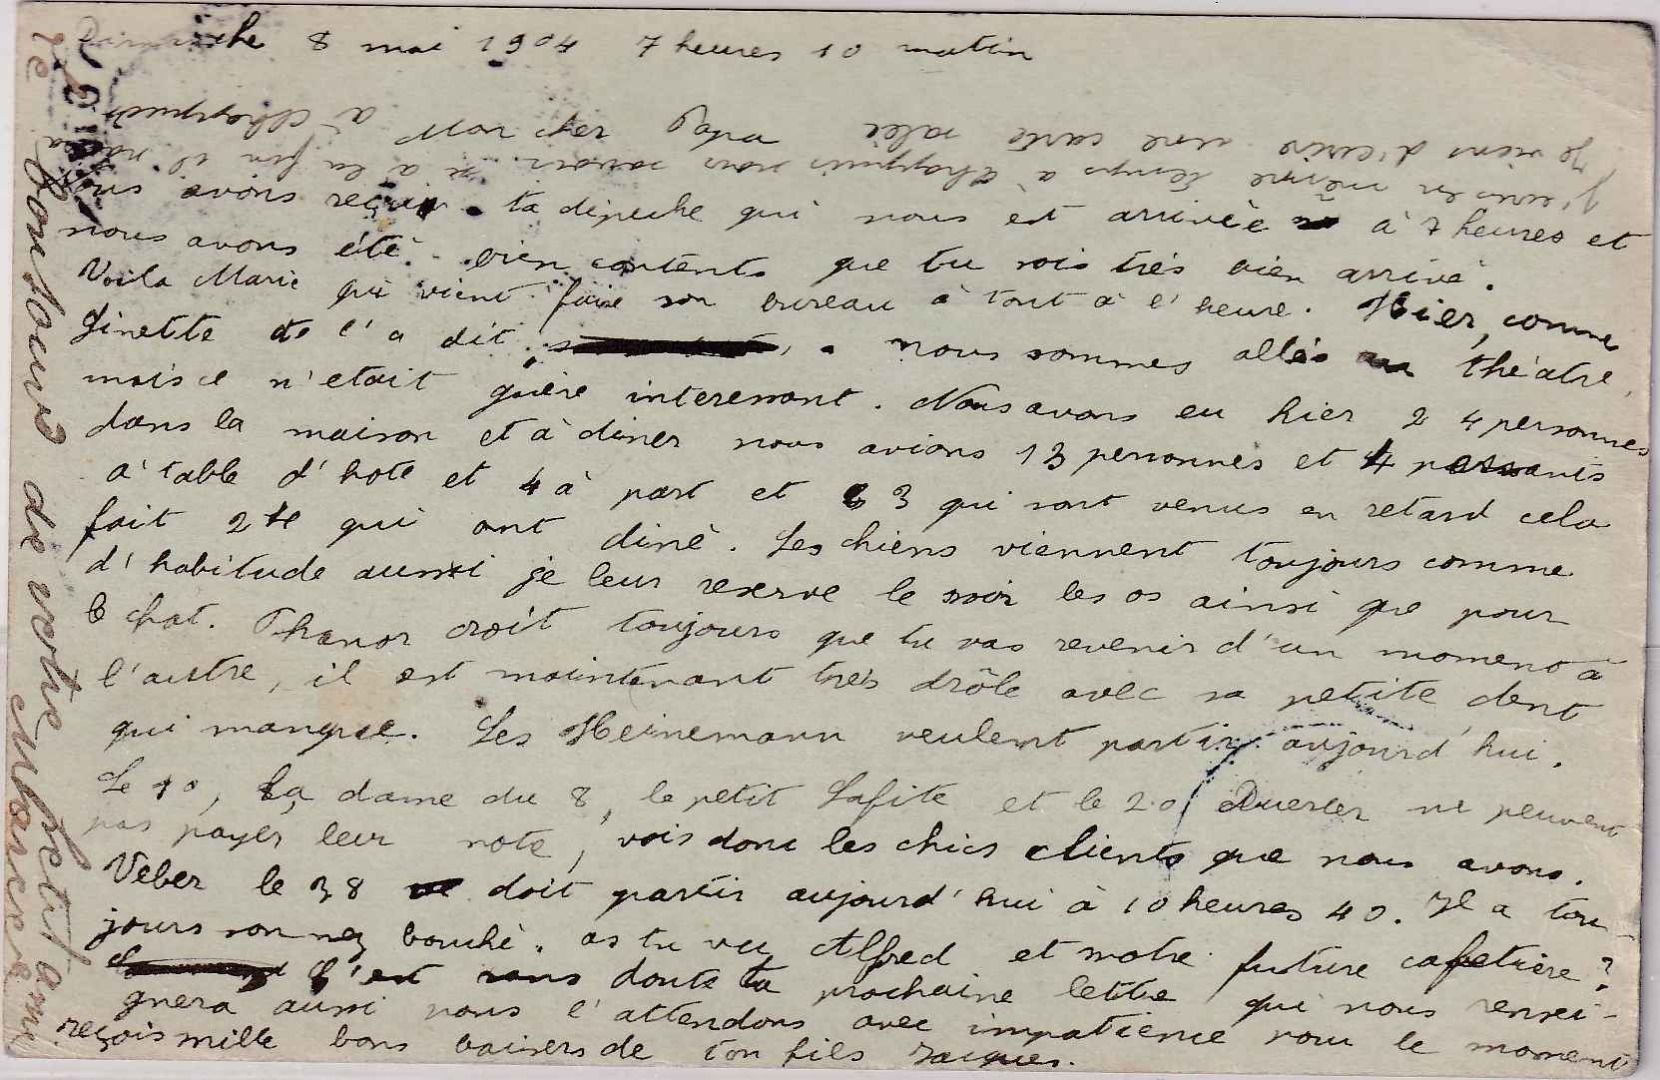 Dimanche 8 mai 1904 7 heures 10 matin
Mon cher Papa
Nous avons reçu ta dépeche qui nous est arrivée à 7 heures et
nous avons été bien contents que tu sois très bien arrivé.
Voila Marie qui vient faire son bureau à tout à l'heure. Hier, comme
Ginette te l'a dit nous sommes allés au théatre,
mais ce n'etait guère interessant. Nous avons eu hier 24 personnes
dans la maison et à diner nous avions 13 personnes et 4 passants
à table d'hote et 4 à part et 3 qui sont venus en retard cela
fait 24 qui ont diné. Les chiens viennent toujours comme
d'habitude aussi je leur reserve le soir les os ainsi que pour
le chat. Phanor croit toujours que tu vas revenir d'un moment à
l'autre, il est maintenant très drôle avec sa petite dent
qui manque. Les Heinemann veulent partir aujourd'hui.
Le 10, la dame du 8, le petit Lafite et le 20 ne peuvent
pas payer leur note, vois donc les chics clients que nous avons.
Veber le 38 doit partir aujourd'hui à 10 heures 40. Il a tou-
jours son nez bouché. as tu vu Alfred et notre future cafetière?
C'est sans doute ta prochaine lettre qui nous rensei-
gnera aussi nous l'attendons avec impatience pour le moment
reçois mille bons baisers de ton fils Jacques.
Je viens d'ecrire une carte salée à Chappuis
J'ecris en même temps à Chappuis
le bonjour de votre petit ami
Marcel